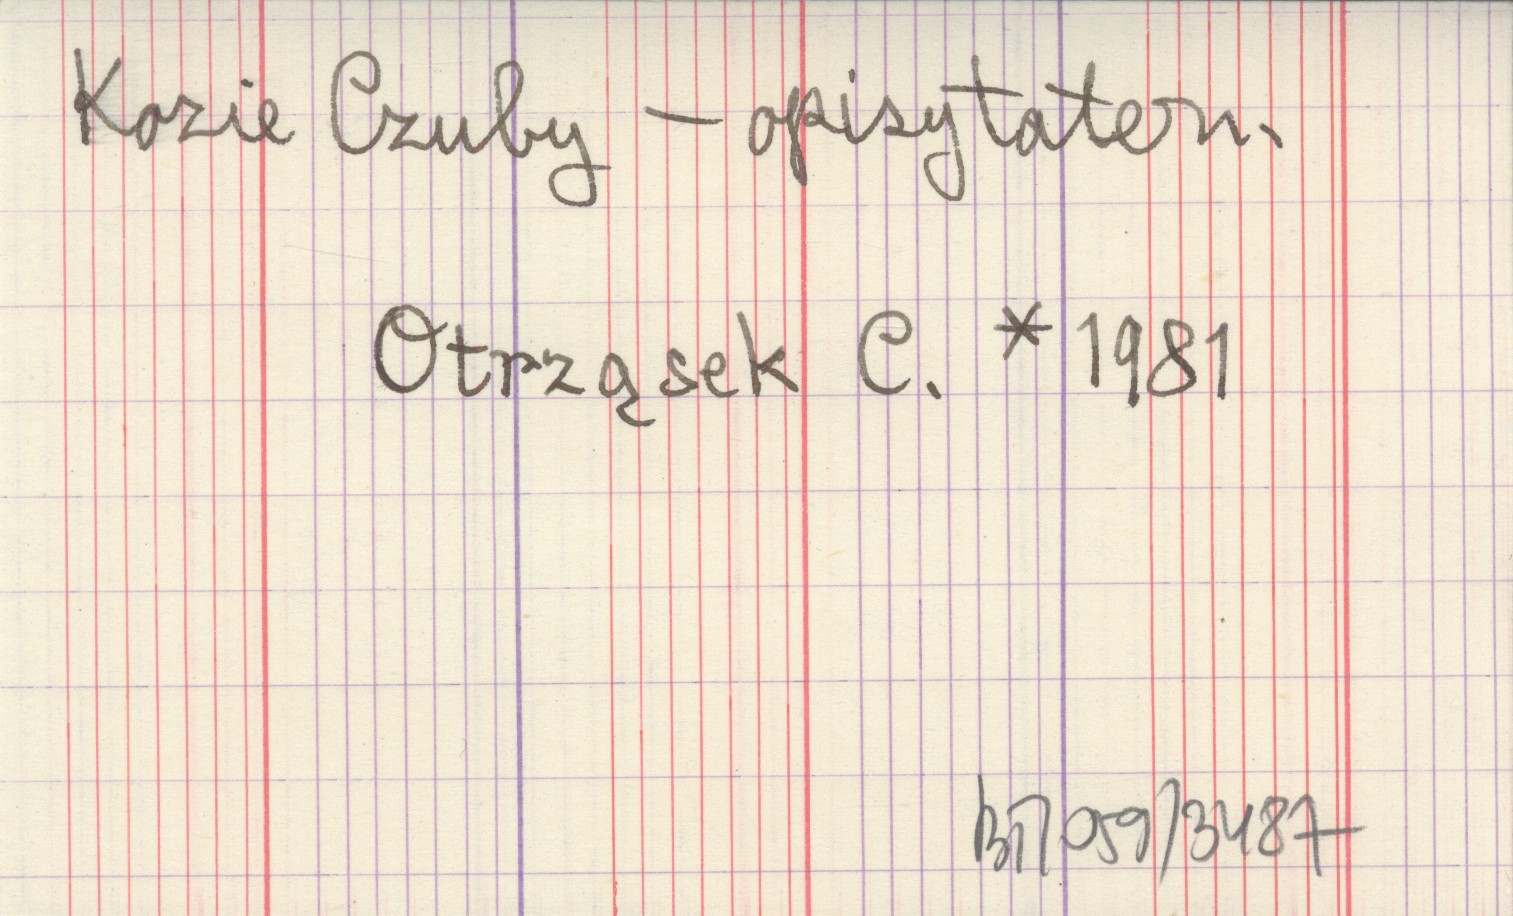 Kozie Czuby - opisy tatern.
Otrząsek C. * 1981
059/3487